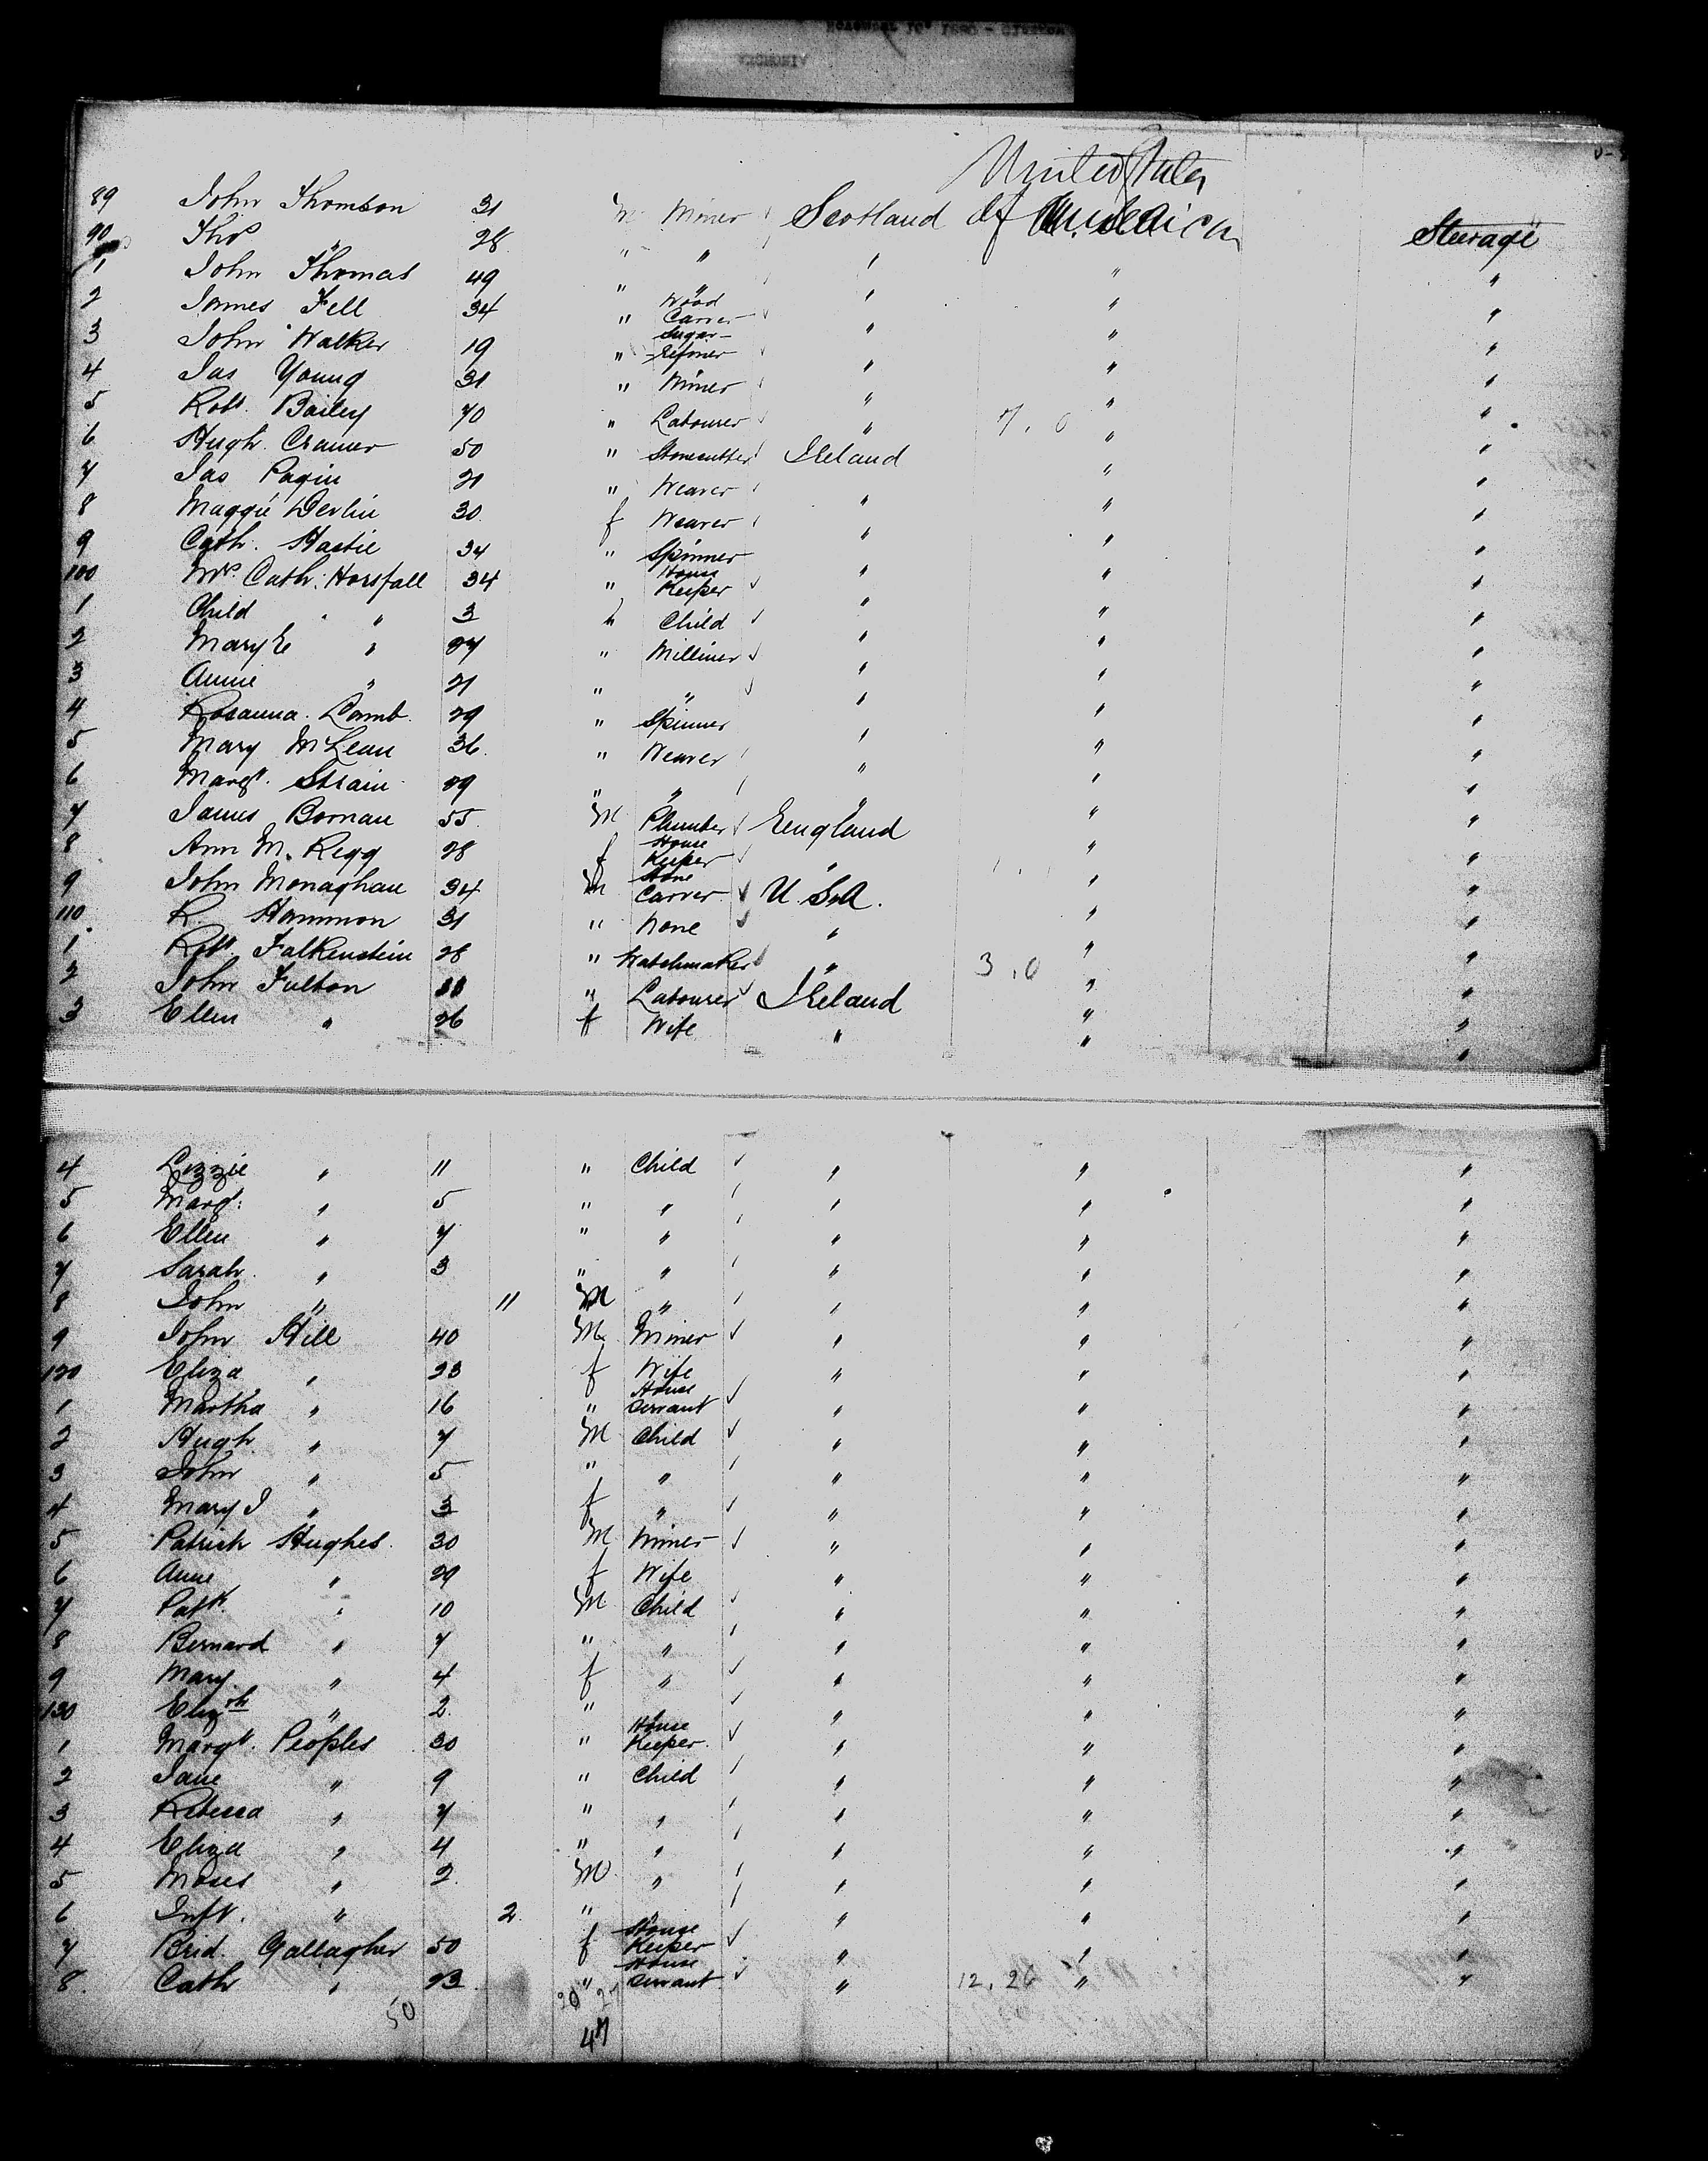 United States
89 John Thomson 31 M Miner Scotland Of America Steerage
90 Thos " 28 " " " " "
1 John Thomas 49 " " " " "
2 James Fell 34 " Wood Carver " " "
3 John Walker 19 " Sugar Refiner " " "
4 Jas Young 31 " Miner " " "
5 Robt. Bailey 70 " Labourer " 7.0 " "
6 Hugh Cramer 50 " Stonecutter Ireland " "
7 Jas Pagin 21 " Weaver " " "
8 Maggie Devlin 30 f Weaver " " "
9 Cath. Hastie 34 " Spinner " " "
100 Mrs. Cath. Horsfall 34 " House Keeper " " "
1 Child " 3 " Child " " "
2 Mary E " 27 " Milliner " " "
3 Annie " 21 " " " " "
4 Rosanna Lamb 29 " Spinner " " "
5 Mary McLean 36 " Weaver " " "
6 Margt. Strain 29 " " " " "
7 James Bornan 55 M Plumber England " "
8 Ann M. Kegg 28 f House Keeper " " "
9 John Monaghan 34 M Stone Carver U.S.A. " "
110 R. Hammon 31 " None " " "
1 Robt. Falkenstein 28 " Watchmaker " 3.0 " "
2 John Fulton " Labourer Ireland " "
3 Ellen " 26 f Wife " " "
4 Lizzie " 11 " Child " " "
5 Margt. " 5 " " " " "
6 Ellen " 7 " " " " "
7 Sarah " 3 " " " " "
8 John " 11 M " " " "
9 John Hill 40 M Miner " " "
120 Eliza " 23 f Wife " " "
1 Martha " 16 " House Servant " " "
2 Hugh " 7 M Child " " "
3 John " 5 " " " " "
4 Mary J " 3 f " " " "
5 Patrick Hughes 30 M Miner " " "
6 Anne " 29 f Wife " " "
7 Patk. " 10 M Child " " "
8 Bernard " 7 " " " " "
9 Mary " 4 f " " " "
130 Elizth " 2 " " " "
1 Margt. Peoples 30 " House Keeper " " "
2 Jane " 9 " Child " " "
3 Rebecca " 7 " " " " "
4 Eliza " 4 " " " " "
5 Moses " 2 M " " " "
6 Inft. " 2 " " " " "
7 Brid. Gallagher 50 f House Keeper " " "
8 Cath " 23 " House Servant " 12.26 " "
50
47